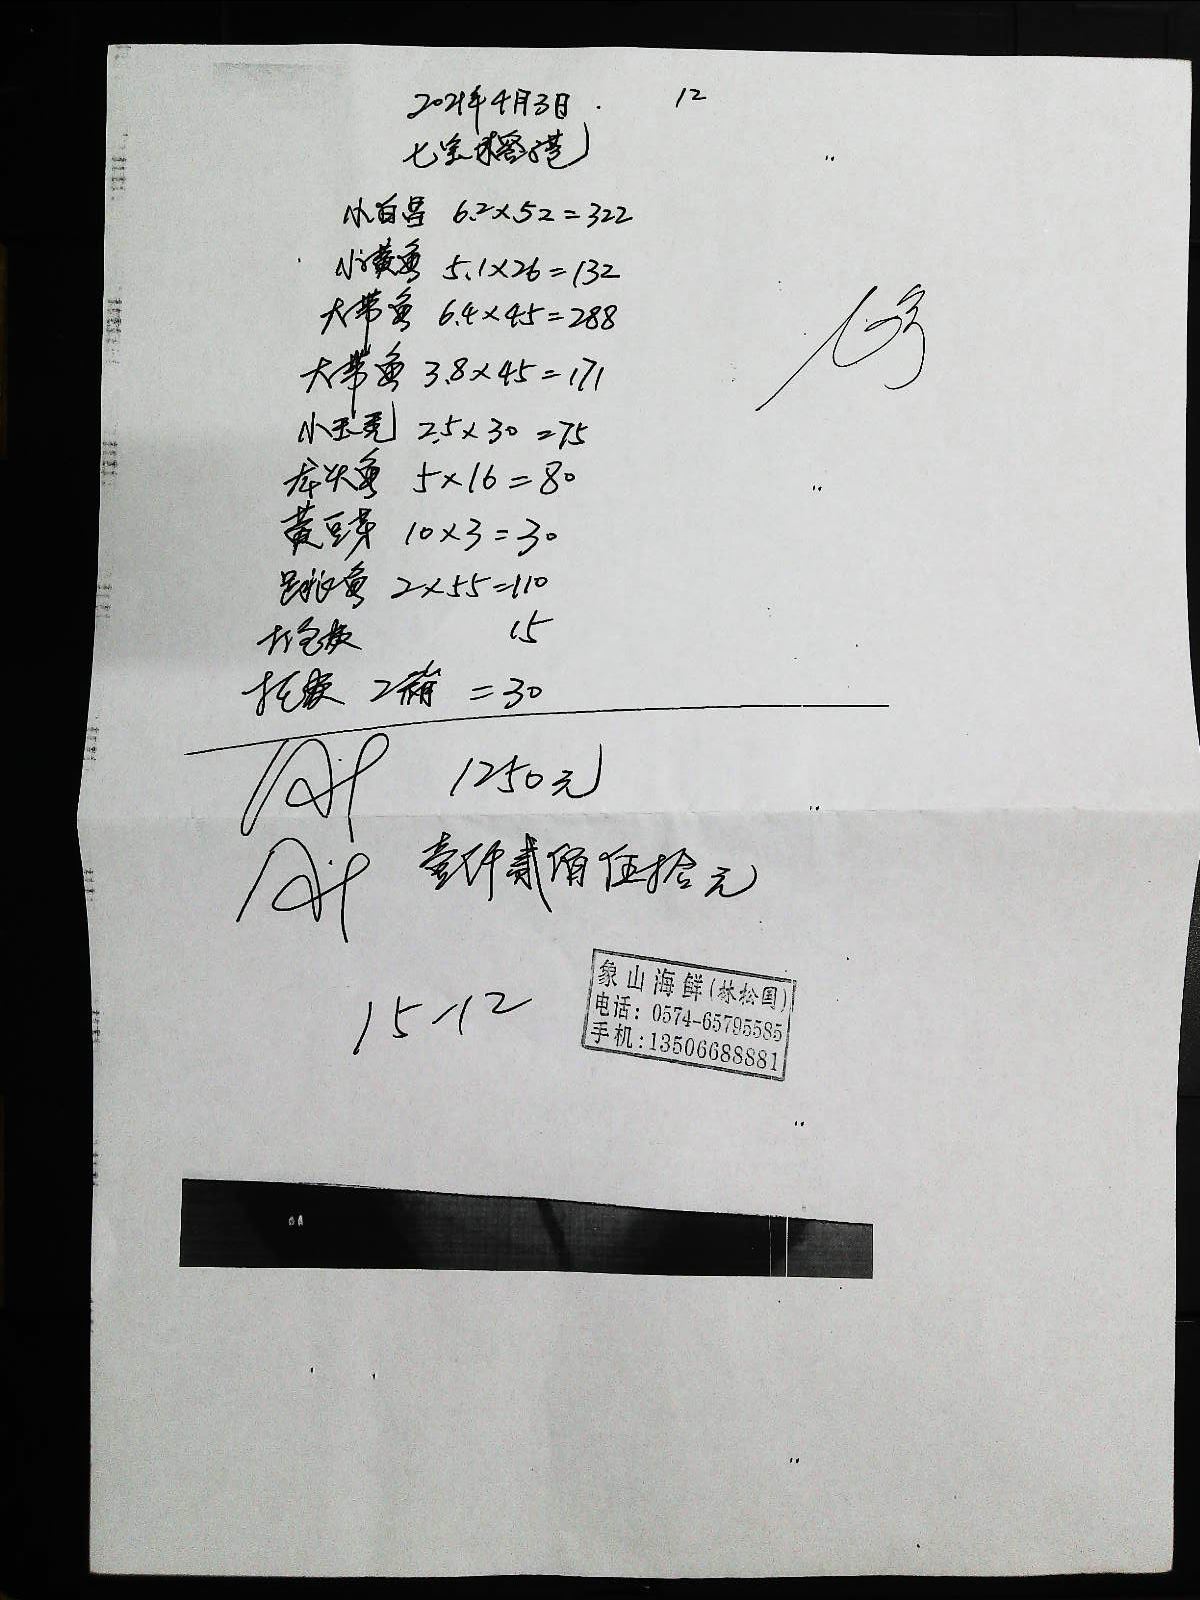 2021年4月3日 12
七宝
小白昌 6.2×52=322
小黄鱼 5.1×26=132
大带鱼 6.4×45=288
大带鱼 3.8×45=171
小玉秃 2.5×30=75
龙头鱼 5×16=80
黄豆芽 10×3=30
鱼 2×55=110
打包费 15
托费 2箱=30
1250元
壹仟贰佰伍拾元
15-12
象山海鲜(林松国)
电话：0574-65795585
手机:13506688881